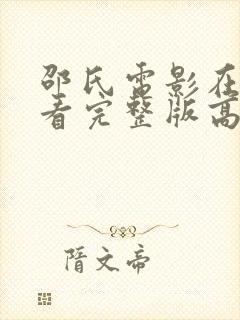 邵氏电影在
看完整版高
隋文帝